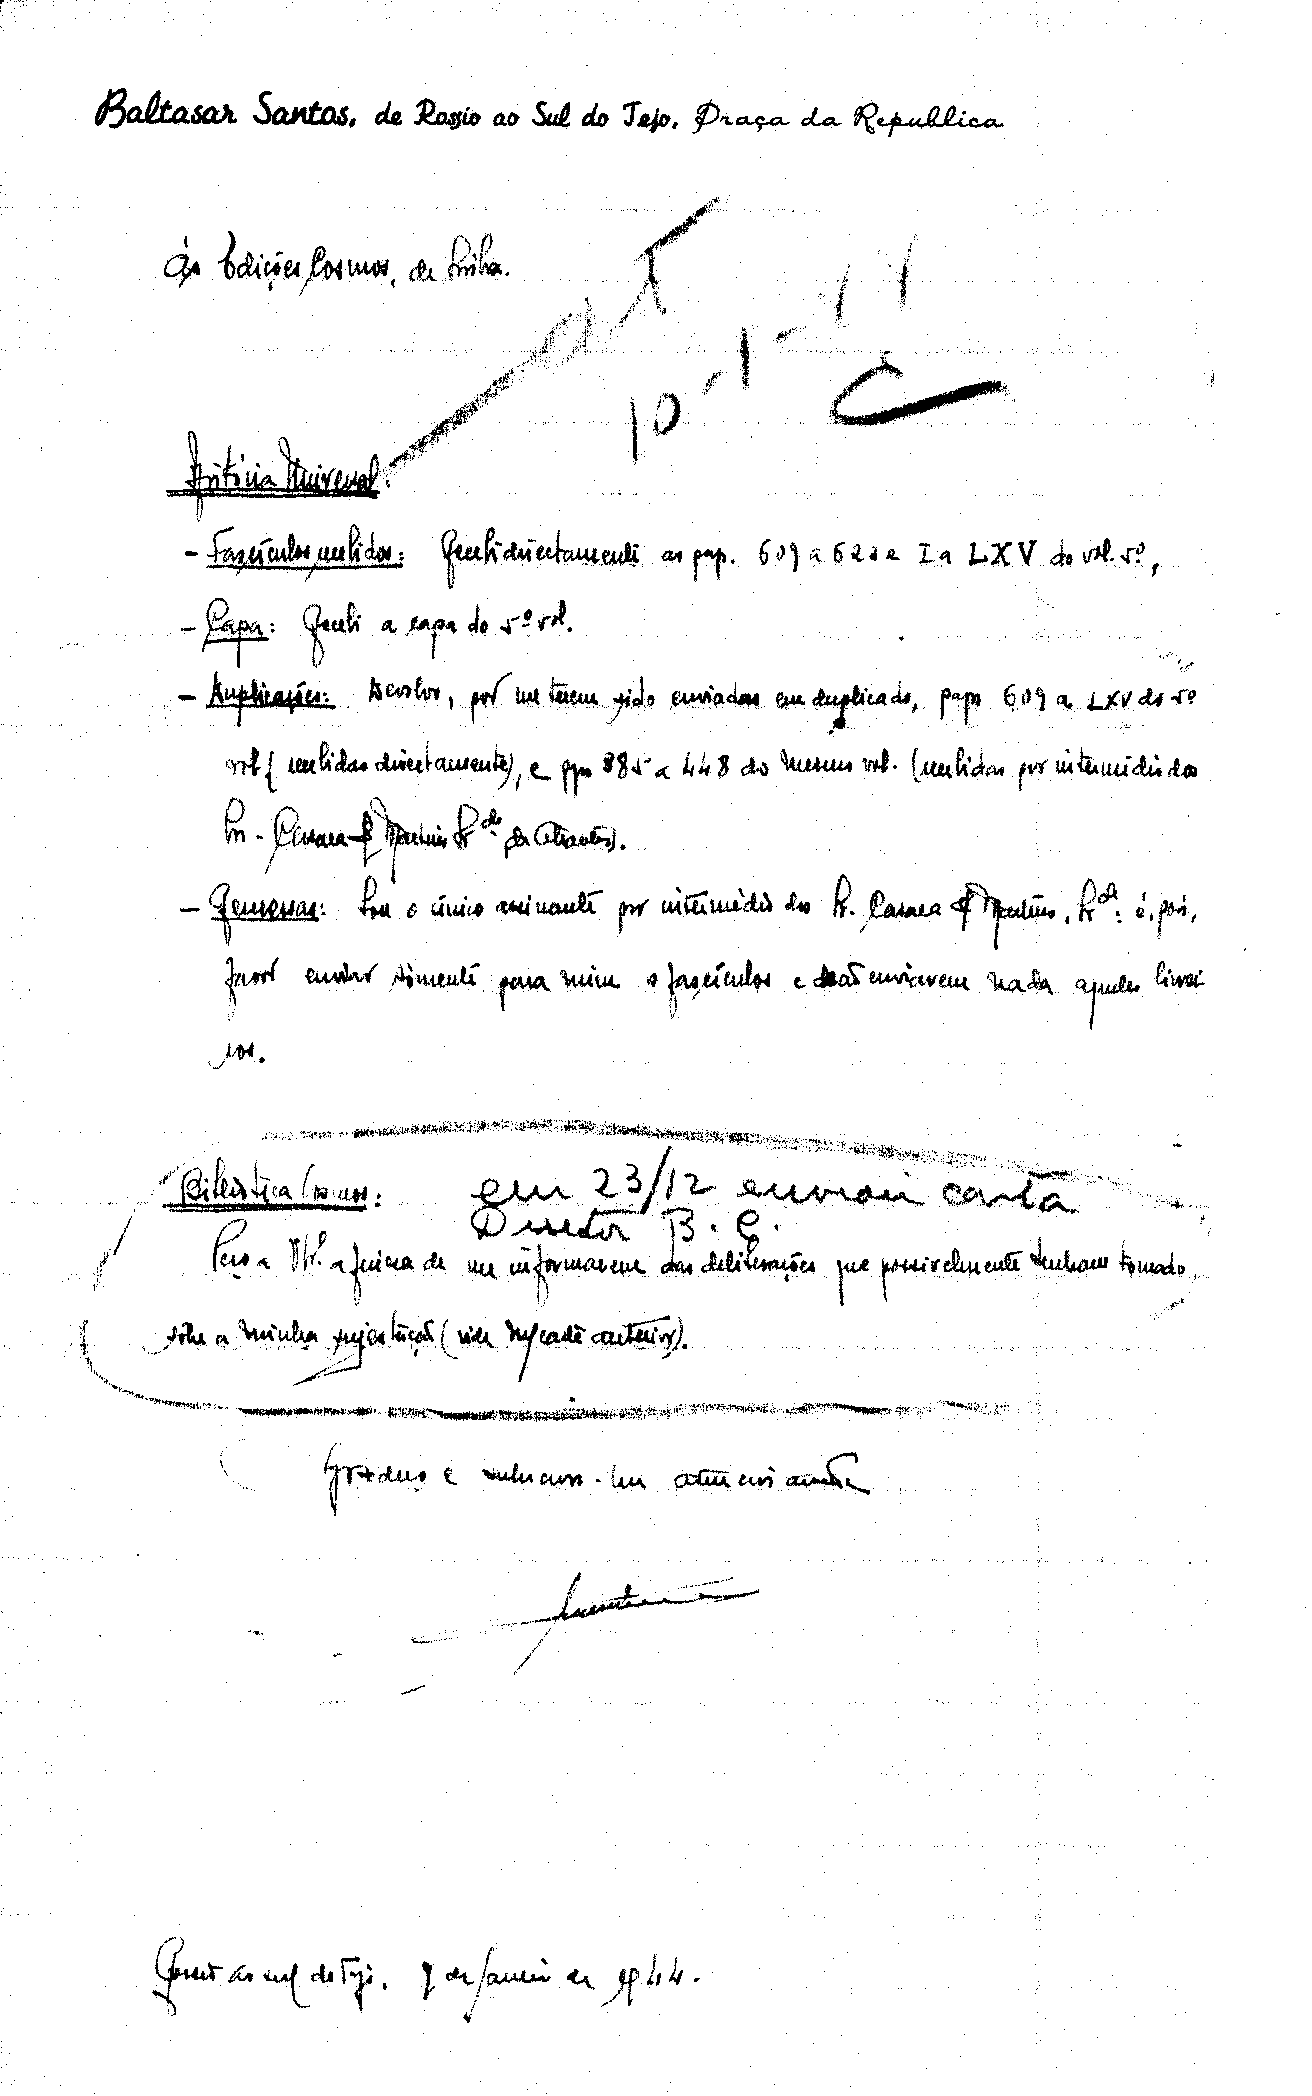 Baltasar Santos, de Rossio ao Sul do Tejo, Praça da Republica
Ás Edições Cosmos, de Lisboa.
10-1-44
História Universal:
- Fascículos recebidos: Recebi directamente as pag. 609 a 622 e I a LXV do vol. 5º,
- Capa: Recebi a capa do 5º vol.
- Duplicações: Devolvo, por me terem sido enviadas em duplicado, pags 609 a LXV do 5º
vol. (recebidas directamente), e pgs 385 a 448 do mesmo vol. (recebidas por intermédio dos
Srs. de Abrantes).
- Remessas: Sou o único assinante por intermédio dos Srs. é, pois,
favor enviar sómente para mim os fascículos e não enviarem nada aqueles livrei
ros.
Biblioteca Cosmos:
em 23/12 enviou carta
Director B. C.
Peço a V. a fineza de me informarem das deliberações que possivelmente tenham tomado
sobre a minha sugestão (vide carta anterior).
Grato e atenciosamente
Rossio ao sul do Tejo, 9 de Janeiro de 1944.